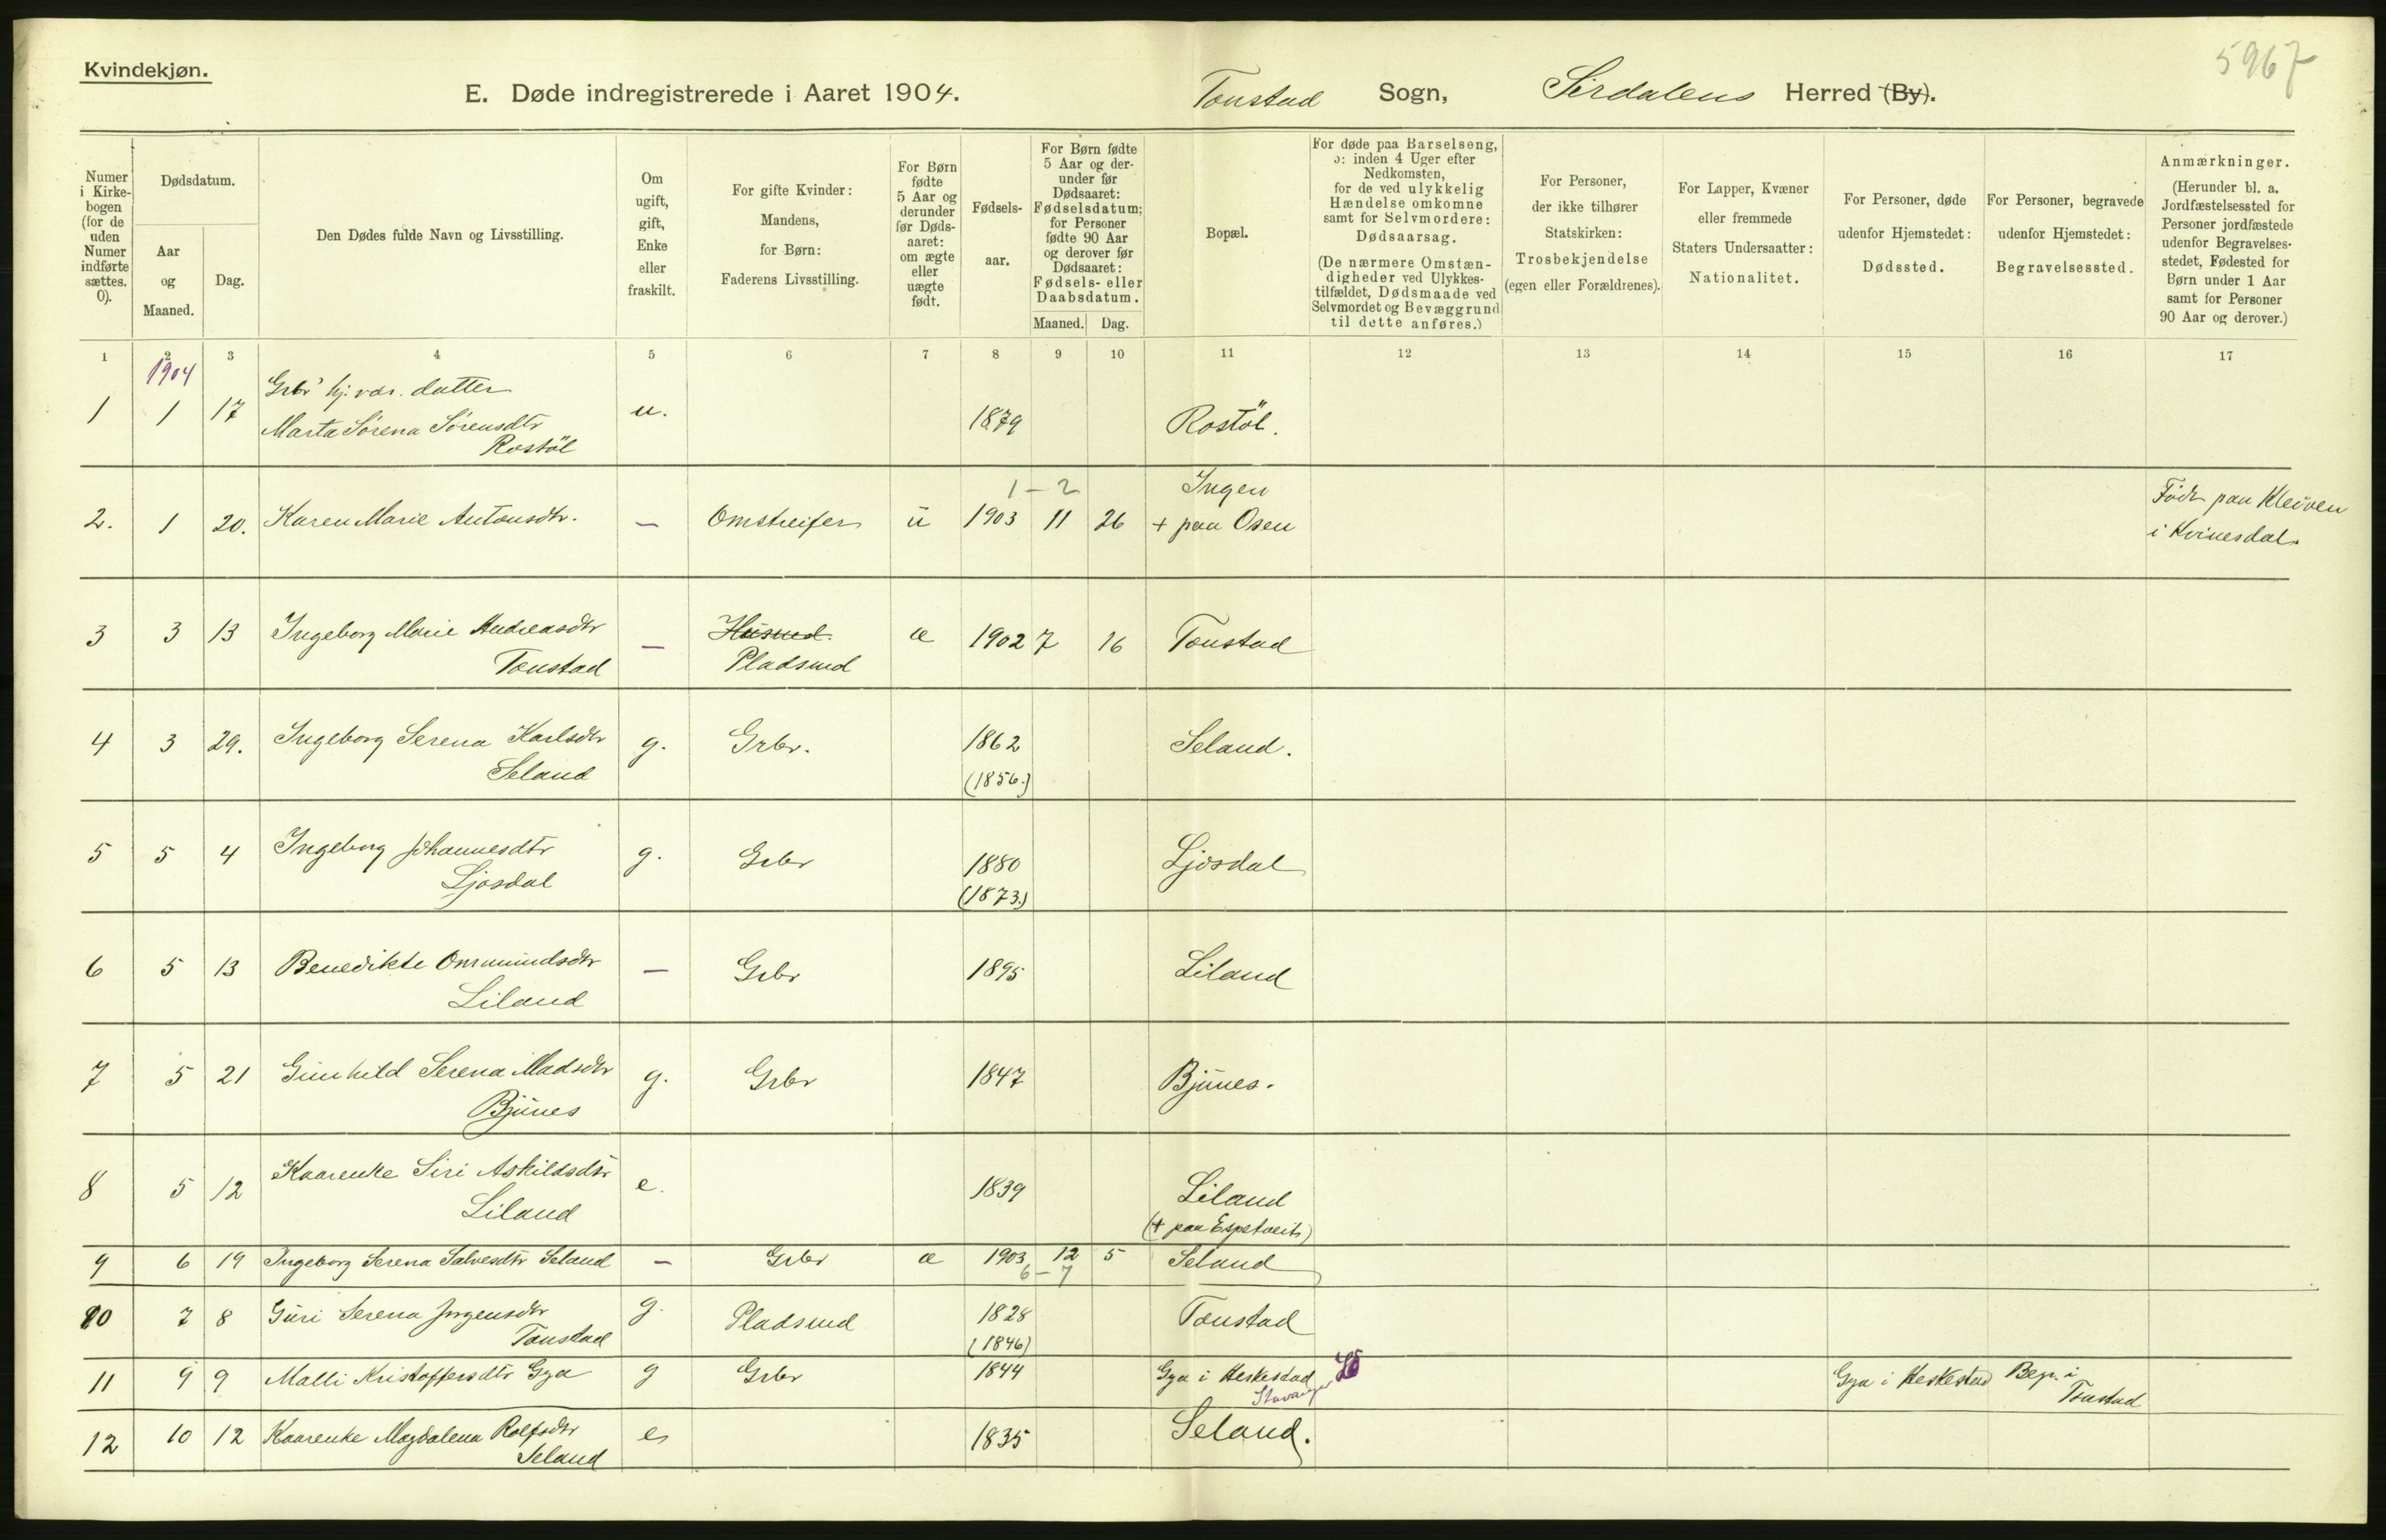 Kvindekjøn.
5967
E. Døde indregistrerede i Aaret 1904. Tonstad Sogn, Sirdalens Herred (By).
Numer i Kirkebogen (for de uden Numer indførte sættes. 0).
Dødsdatum.
Aar og Maaned.
Dag.
Den Dødes fulde Navn og Livsstilling.
Om ugift, gift, Enke eller fraskilt.
For gifte Kvinder: Mandens, for Børn: Faderens Livsstilling.
For Børn fødte 5 Aar og derunder før Dødsaaret: om ægte eller uægte født.
Fødselsaar.
For Børn fødte 5 Aar og derunder før Dødsaaret: Fødselsdatum; for Personer fødte 90 Aar og derover før Dødsaaret: Fødsels- eller Daabsdatum.
Maaned. Dag.
Bopæl.
For døde paa Barselseng, ɔ: inden 4 Uger efter Nedkomsten, for de ved ulykkelig Hændelse omkomne samt for Selvmordere: Dødsaarsag. (De nærmere Omstændigheder ved Ulykkestilfældet, Dødsmaade ved Selvmordet og Bevæggrund til dette anføres.)
For Personer, der ikke tilhører Statskirken: Trosbekjendelse (egen eller Forældrenes).
For Lapper, Kvæner eller fremmede Staters Undersaatter: Nationalitet.
For Personer, døde udenfor Hjemstedet: Dødssted.
For Personer, begravede udenfor Hjemstedet: Begravelsessted.
Anmærkninger. (Herunder bl. a. Jordfæstelsessted for Personer jordfæstede udenfor Begravelsesstedet, Fødested for Børn under 1 Aar samt for Personer 90 Aar og derover.)
1 2 3 4 5 6 7 8 9 10 11 12 13 14 15 16 17
1904
Grbr hj. vær. datter
1 1 17 Marta Sørena Sørensdtr u. 1879 Rostöl.
Rostöl
1 - 2 Ingen
2. 1 20. Karen Marie Antonsdtr. — Omstreifer ü 1903 11 26 + paa Osen Födt paa Kleiven
i Kvinesdal.
3 3 13 Ingeborg Marie Andreasdtr — Husmd. æ 1902 7 16 Tonstad
Tonstad Pladsmd
4 3 29. Ingeborg Serena Karlsdtr g. Grbr. 1862 Seland.
Seland (1856.)
5 5 4 Ingeborg Johannesdtr g. Grbr 1880 Ljosdal
Ljosdal (1873.)
6 5 13 Benedikte Ommundsdtr — Grbr 1895 Liland
Liland
7 5 21 Gunhild Serena Madsdtr g. Grbr 1847 Bjünes.
Bjünes
8 5 12 Kaarenke Siri Askildsdtr e. 1839 Liland
Liland (+ paa Espetveit)
9 6 19 Ingeborg Serena Salvesdtr Seland — Grbr æ 1903 12 5 Seland
6 - 7
10 7 8 Güri Serena Jørgensdtr g. Pladsmd 1828 Tonstad
Tonstad (1846)
11 9 9 Malli Kristoffersdtr Gya g Grbr 1844 Gya i Heskestad Gya i Heskestad Begr. i
Stavanger Tonstad
12 10 12 Kaarenke Magdalena Rolfsdtr e 1835 Seland.
Seland